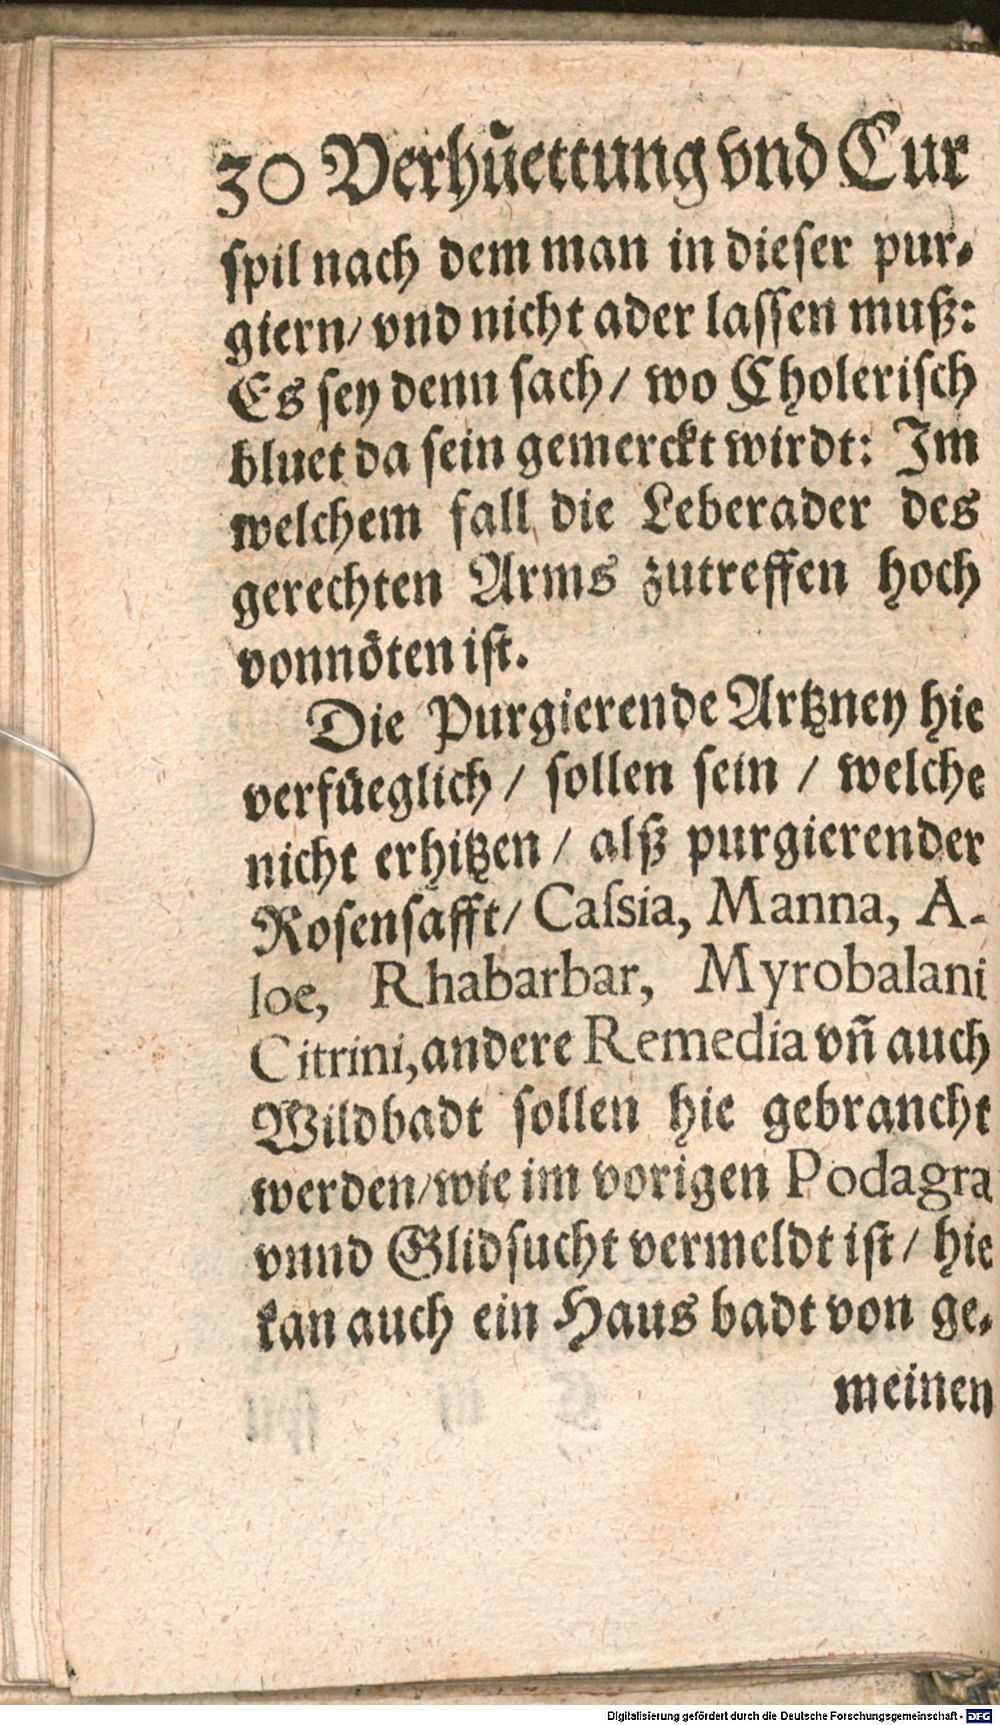 30 Verhüettung vnd Cur
spil nach dem man in dieser pur-
giern/ vnd nicht ader lassen muß:
Es sey denn sach/ wo Cholerisch
bluet da sein gemerckt wirdt: Im
welchem fall die Leberader des
gerechten Arms zutreffen hoch
vonnöten ist.
Die Purgierende Artzney hie
verfüeglich / sollen sein / welche
nicht erhitzen / alß purgierender
Rosensafft/ Cassia, Manna, A-
loe, Rhabarbar, Myrobalani
Citrini, andere Remedia vñ auch
Wildbadt sollen hie gebrancht
werden/wie im vorigen Podagra
vnnd Glidsucht vermeldt ist/ hie
kan auch ein Haus badt von ge-
meinen
Digitalisierung gefördert durch die Deutsche Forschungsgemeinschaft - DFG